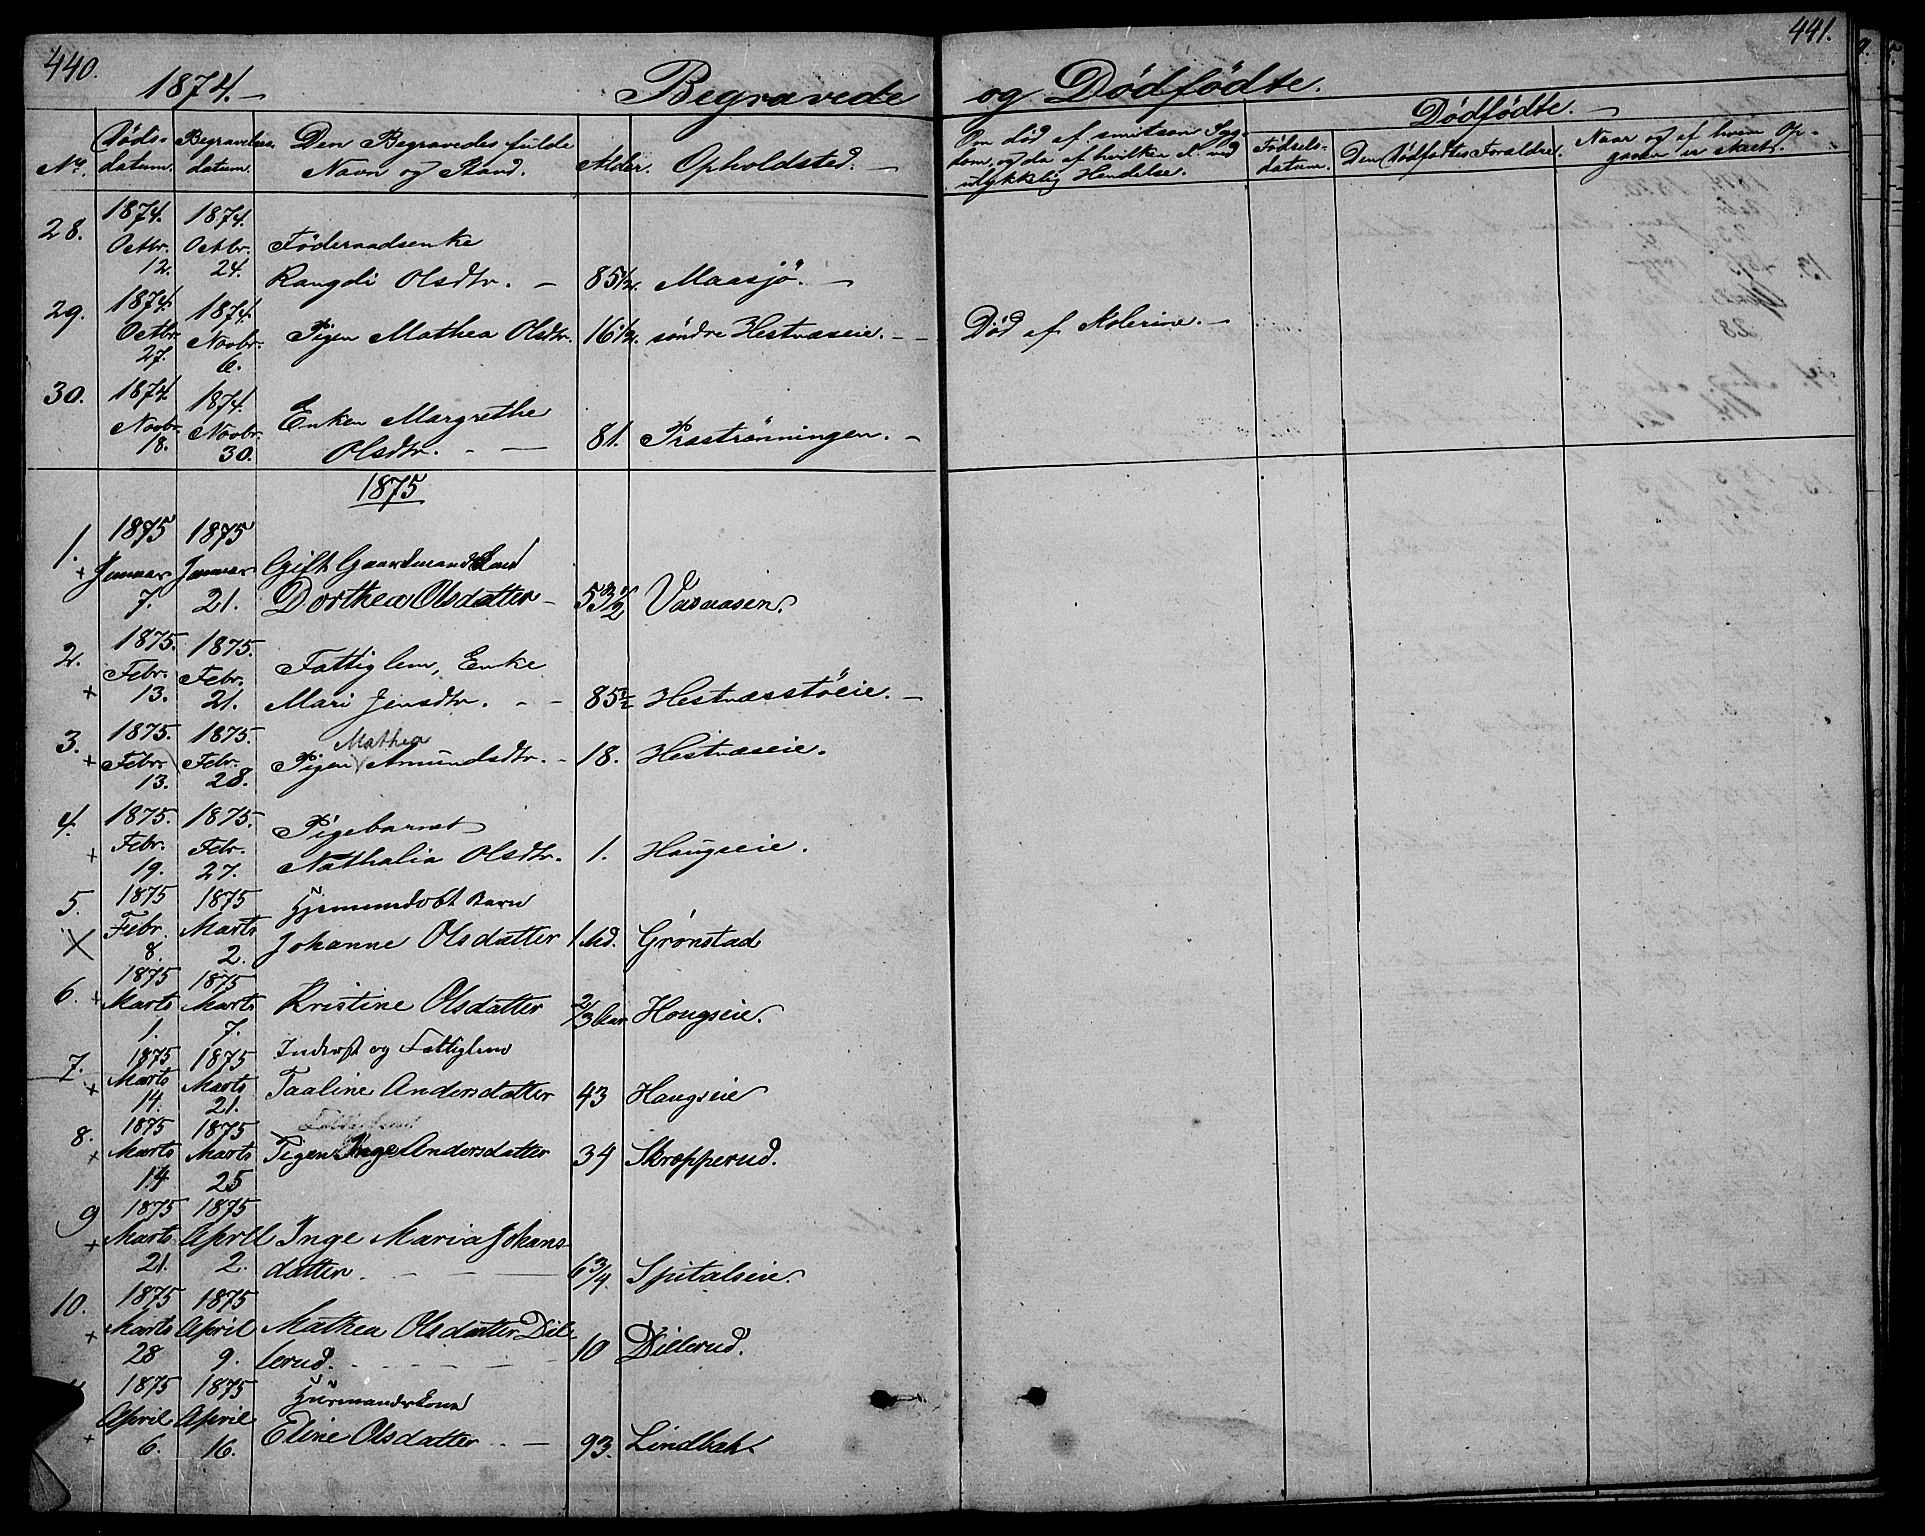 440.
1874.
Begravede og Dødfødte.
441.
Nr. Døds-datum. Begravelses-datum. Den Begravedes fulde Navn og Stand. Alder. Opholdsted.
Om død af smitsom Sygdom, og da af hvilken el. ved ulykkelig Hendelse.
Dødfødte.
Fødsels-datum. Den Dødfødtes Forældre. Naar og af hvem Opgaven er skeet.
28. 1874. Octbr. 12. 1874. Octbr. 24. Føderaadsenke
Rangdi Olsdtr. 85 1/2. Maasjø.
29. 1874. Octbr. 27. 1874. Novbr. 6. Pigen Mathea Olsdtr. 16 1/2. søndre Hestnæseie. Død af Kolerine.
30. 1874. Novbr. 18. 1874. Novbr. 30. Enken Margrethe
Olsdtr. 81. Præstrønningen.
1875
1. 1875 Januar 7. 1875 Januar 21. Gift Gaardmandskone
Dorthea Olsdatter 53 1/2
2. 1875. Febr. 13. 1875. Febr. 21. Fattiglem, Enke
Mari Jensdtr. 85 1/2 Hestnæsstøeie.
3. 1875. Febr. 13. 1875. Febr. 28. Mathea
Pigen Amundsdtr. 18. Hestnæseie.
4. 1875. Febr. 19. 1875. Febr. 27. Pigebarnet
Nathalia Olsdtr. 1. Haugseie.
5. 1875 Febr. 8. 1875 Marts 2. Hjemmedøbt Barn
Johanne Olsdatter 1 Md. Grønstad
6. 1875 Marts 1. 1875 Marts 7. Kristine Olsdatter 2/3 Aar Hougseie.
7. 1875 Marts 14. 1875 Marts 21. Inderst og Fattiglem
Taaline Andersdatter 43 Haugseie
8. 1875 Marts 14 1875 Marts 25
Pigen Inge Andersdatter 34 Skrapperud.
9 1875 Marts 21. 1875 April 2. Inge Maria Johans-
datter. 6 3/4. Spitalseie.
10. 1875 Marts 28 1875 April 9. Mathea Olsdatter Dil-
lerud. 10 Dillerud.
1875 April 6. 1875 April 16. Huusmandskone
Eline Olsdatter 93. Lindbæk.